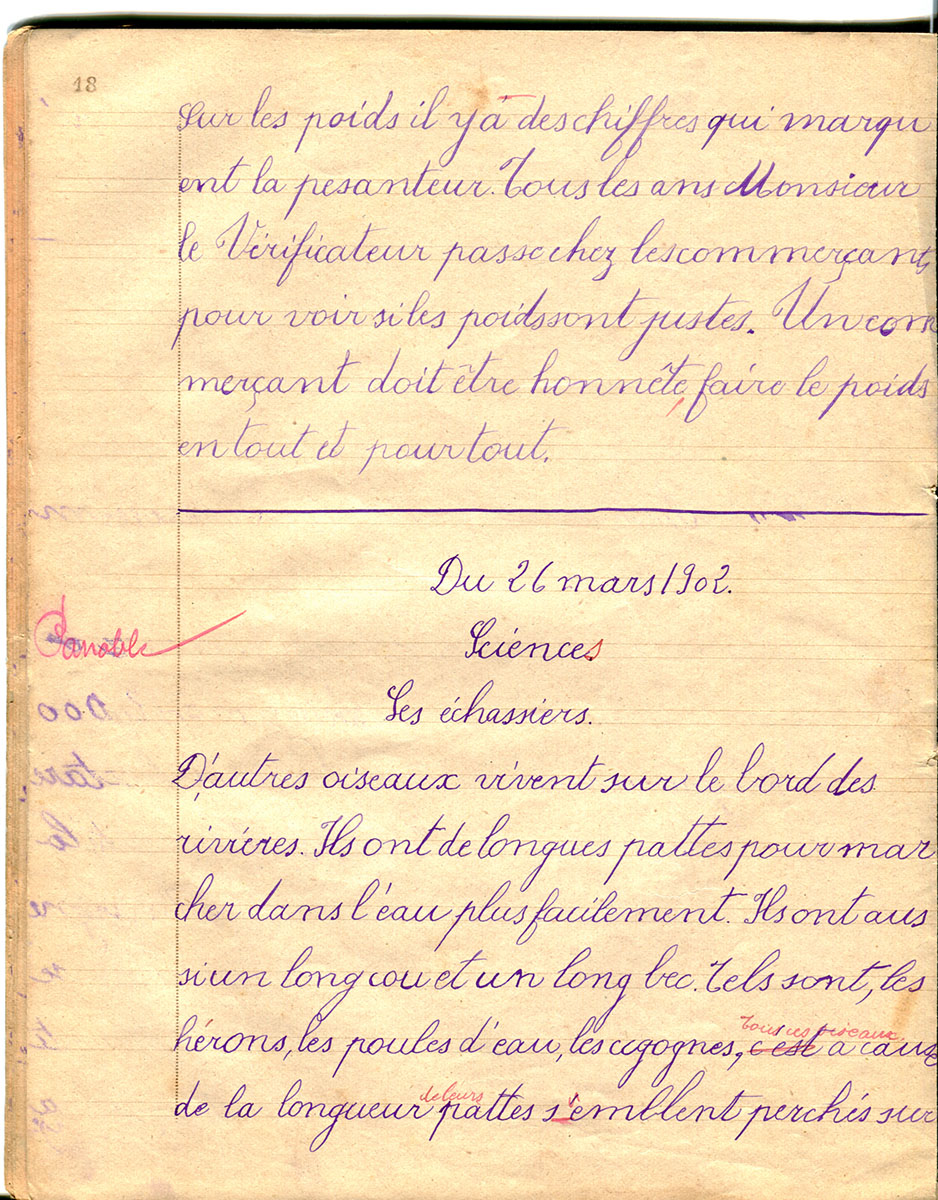 18
Sur les poids il y a des chiffres qui marqu
ent la pesanteur. Tous les ans Monsieur
le Vérificateur passe chez les commerçants
pour voir si les poids sont justes. Un com
merçant doit être honnête, faire le poids
en tout et pour tout.
Du 26 mars 1902.
Passable
Sciences
Les échassiers.
D'autres oiseaux vivent sur le bord des
rivières. Ils ont de longues pattes pour mar
cher dans l'eau plus facilement. Ils ont aus
si un long cou et un long bec. Tels sont, les
tous ces oiseaux
hérons, les poules d'eau, les cigognes, c'est à cause
de leurs
de la longueur pattes s'emblent perchés sur